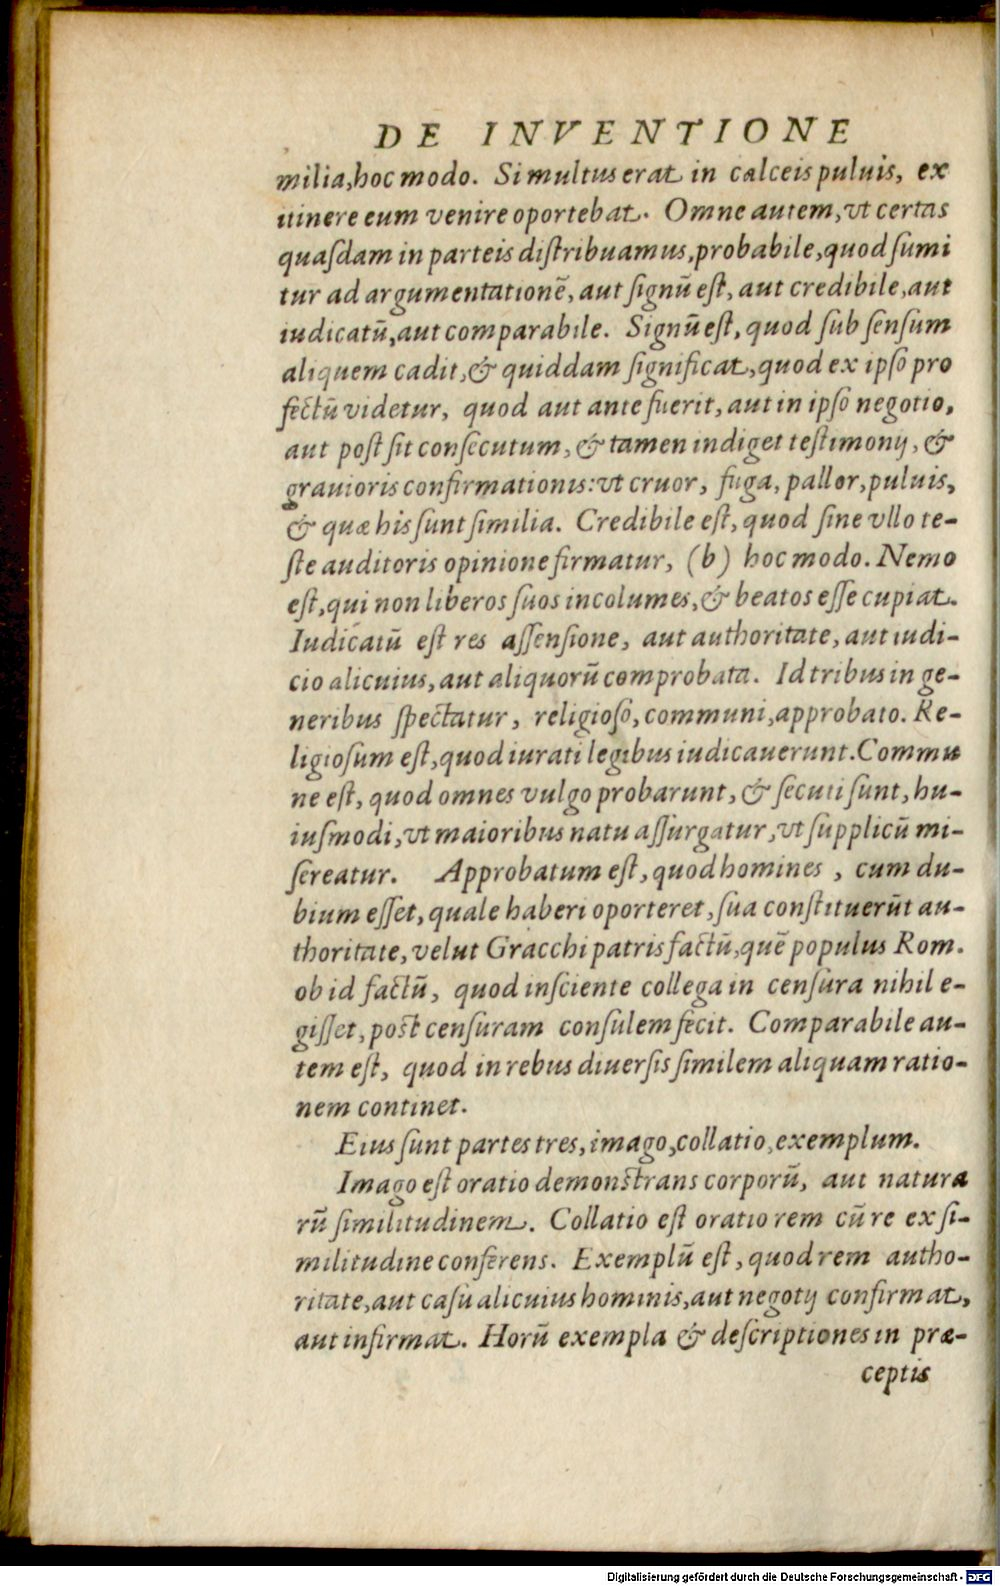 DE INVENTIONE
milia, hoc modo. Si multus erat in calceis puluis, ex
itinere eum venire oportebat. Omne autem, vt certas
quasdam in parteis distribuamus, probabile, quod sumi
tur ad argumentationẽ, aut signũ est, aut credibile, aut
iudicatũ, aut comparabile. Signũ est, quod sub sensum
aliquem cadit, & quiddam significat, quod ex ipso pro
fectũ videtur, quod aut ante fuerit, aut in ipso negotio,
aut post sit consecutum, & tamen indiget testimonij, &
grauioris confirmationis: vt cruor, fuga, pallor, puluis,
& quæ his sunt similia. Credibile est, quod sine vllo te-
ste auditoris opinione firmatur, (b) hoc modo. Nemo
est, qui non liberos suos incolumes, & beatos esse cupiat.
Iudicatũ est res assensione, aut authoritate, aut iudi-
cio alicuius, aut aliquorũ comprobata. Id tribus in ge-
neribus spectatur, religioso, communi, approbato. Re-
ligiosum est, quod iurati legibus iudicauerunt. Commu
ne est, quod omnes vulgo probarunt, & secuti sunt, hu-
iusmodi, vt maioribus natu assurgatur, vt supplicũ mi-
sereatur. Approbatum est, quod homines, cum du-
bium esset, quale haberi oporteret, sua constituerũt au-
thoritate, velut Gracchi patris factũ, quẽ populus Rom.
ob id factũ, quod insciente collega in censura nihil e-
gisset, post censuram consulem fecit. Comparabile au-
tem est, quod in rebus diuersis similem aliquam ratio-
nem continet.
Eius sunt partes tres, imago, collatio, exemplum.
Imago est oratio demonstrans corporũ, aut natura
rũ similitudinem. Collatio est oratio rem cũ re ex si-
militudine conferens. Exemplũ est, quod rem autho-
ritate, aut casu alicuius hominis, aut negotij confirmat,
aut infirmat. Horũ exempla & descriptiones in præ-
ceptis
Digitalisierung gefördert durch die Deutsche Forschungsgemeinschaft - DFG